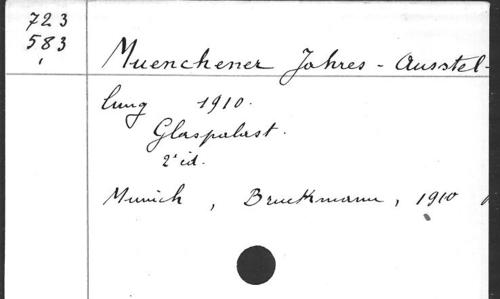 723
583
Muenchener Jahres-Ausstel-
lung 1910.
Glaspalast.
2' id.
Munich, Bruckmann, 1910